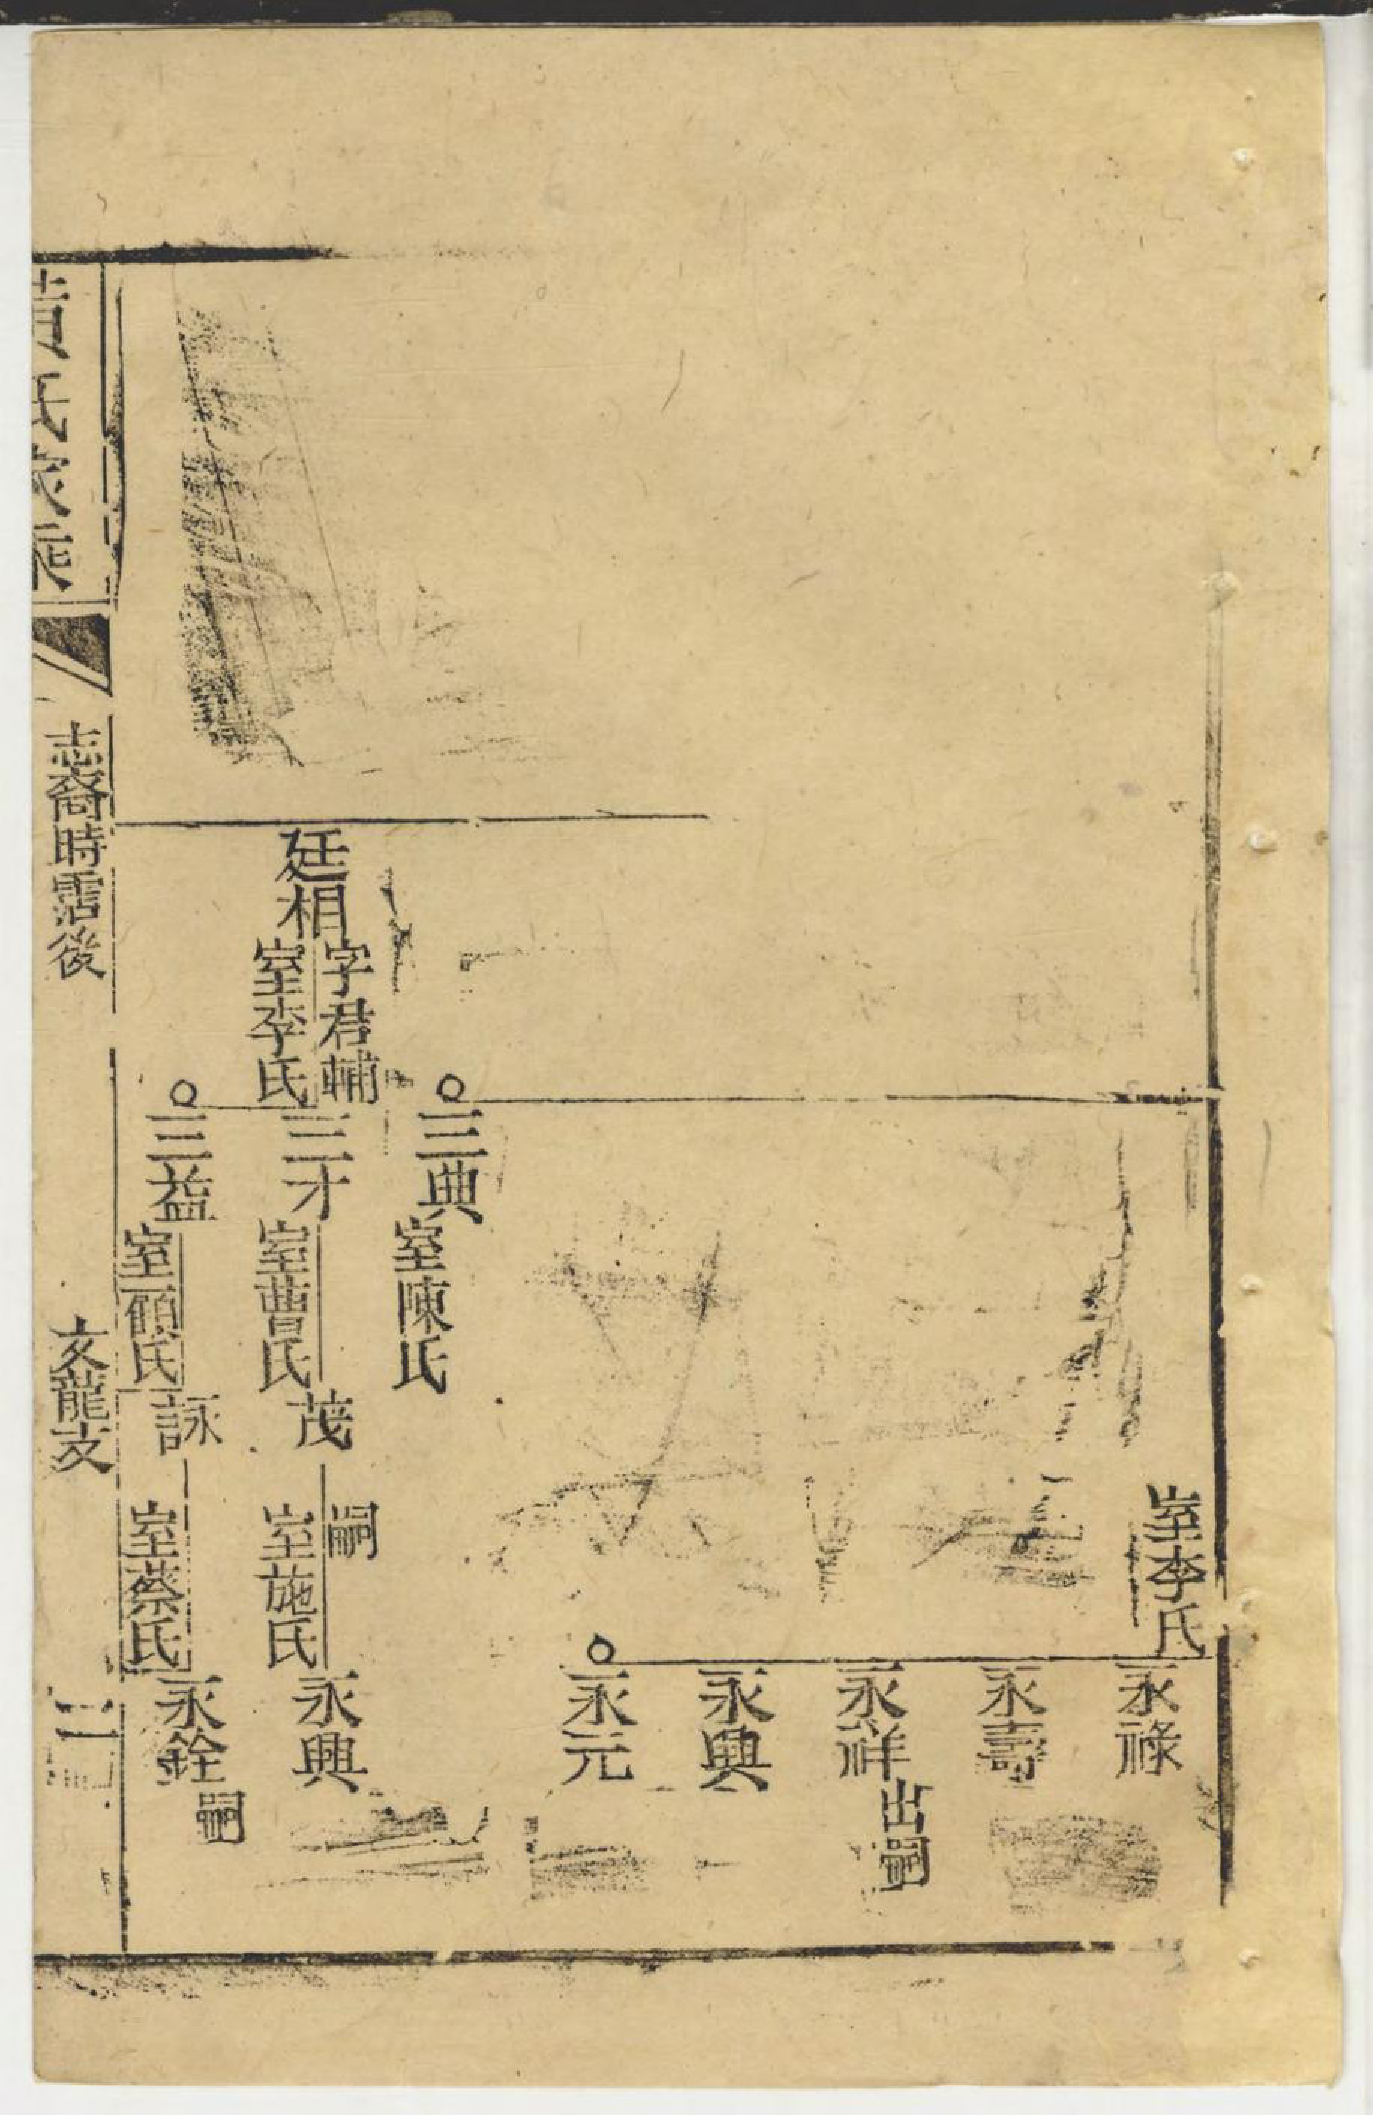 室李氏
永祿
永壽
永祥
出嗣
永興
永元
三典
室陳氏
廷相
字君輔
室李氏
三才
室曹氏
茂
嗣
室施氏
永興
三益
室顧氏
詠
室蔡氏
永銓
嗣
氏家
志裔時霑後
文龍支